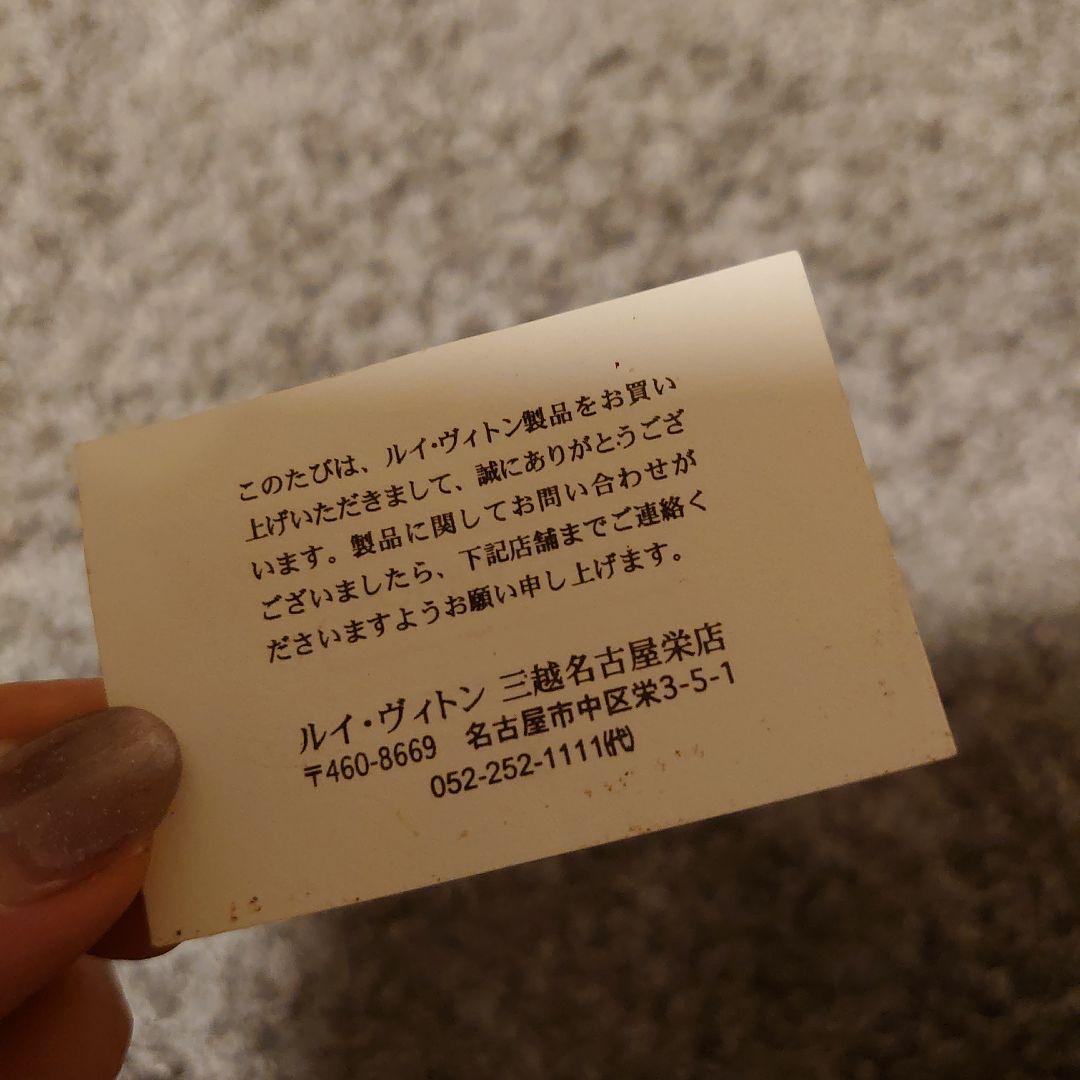 このたびは、ルイ・ヴィトン製品をお買い
上げいただきまして、誠にありがとうござ
います。製品に関してお問い合わせが
ございましたら、下記店舗までご連絡く
ださいますようお願い申し上げます。
ルイ・ヴィトン 三越名古屋栄店
〒460-8669 名古屋市中区栄3-5-1
052-252-1111㈹